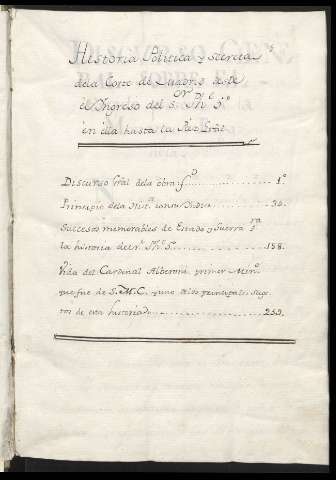 Historia Politica y secreta
dela Corte de Madrid desde
el Yngreso del Sor Dn Phe 5o
en ella hasta la Paz Gral
Discurso Gral dela obra fs ........ 1o
Principio dela Hista con su Yndice ........ 30.
Successos memorables de Estado y Guerra pra
la historia del Sr Phe 5o ........ 158.
Vida del Cardenal Alberoni primer Minro
que fue de S.M.C. y uno de los principales suge
tos de esta historia ........ 259.